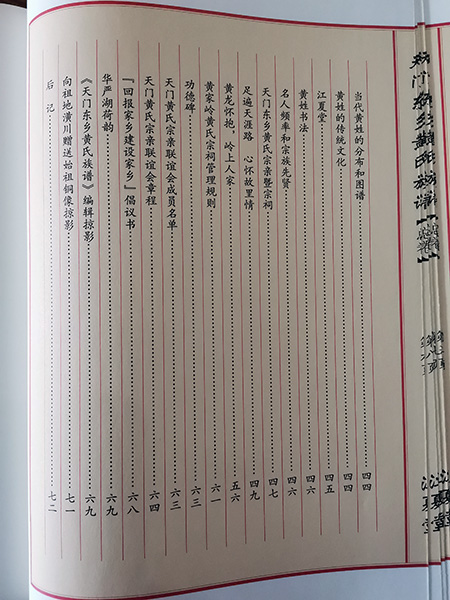 天门东乡黄氏族谱
江夏堂
当代黄姓的分布和图谱……四四
黄姓的传统文化……四四
江夏堂……四五
黄姓书法……四六
名人频率和宗族先贤……四六
天门东乡黄氏宗亲暨宗祠……四七
足遍天涯路 心怀故里情……四九
黄龙怀抱，岭上人家……五六
黄家岭黄氏宗祠管理规则……六一
功德碑……六三
天门黄氏宗亲联谊会成员名单……六三
天门黄氏宗亲联谊会章程……六四
『回报家乡建设家乡』倡议书……六八
华严湖荷韵……六九
《天门东乡黄氏族谱》编辑掠影……六九
向祖地潢川赠送始祖铜像掠影……七一
后 记……七二